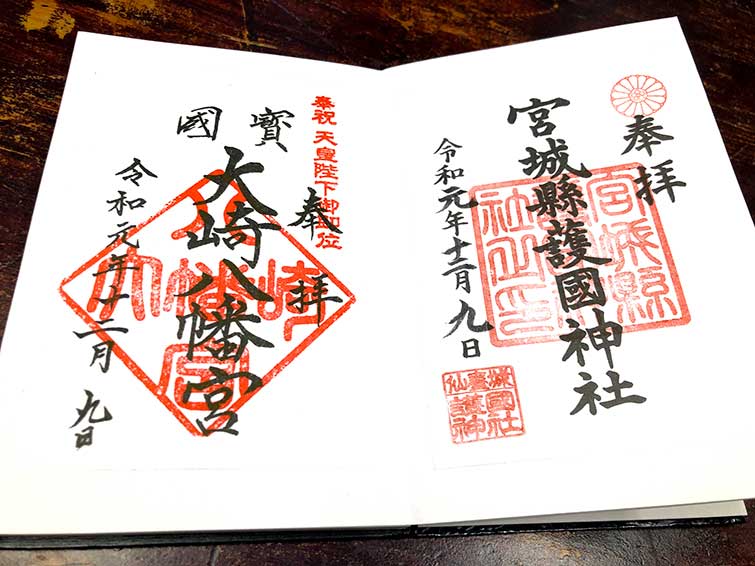 奉拝
宮城縣護國神社
宮城縣
社之印
令和元年十二月九日
仙臺城
護國
神社
奉祝 天皇陛下御即位
奉拝
國寶
大崎八幡宮
大崎八幡宮
令和元年十二月九日